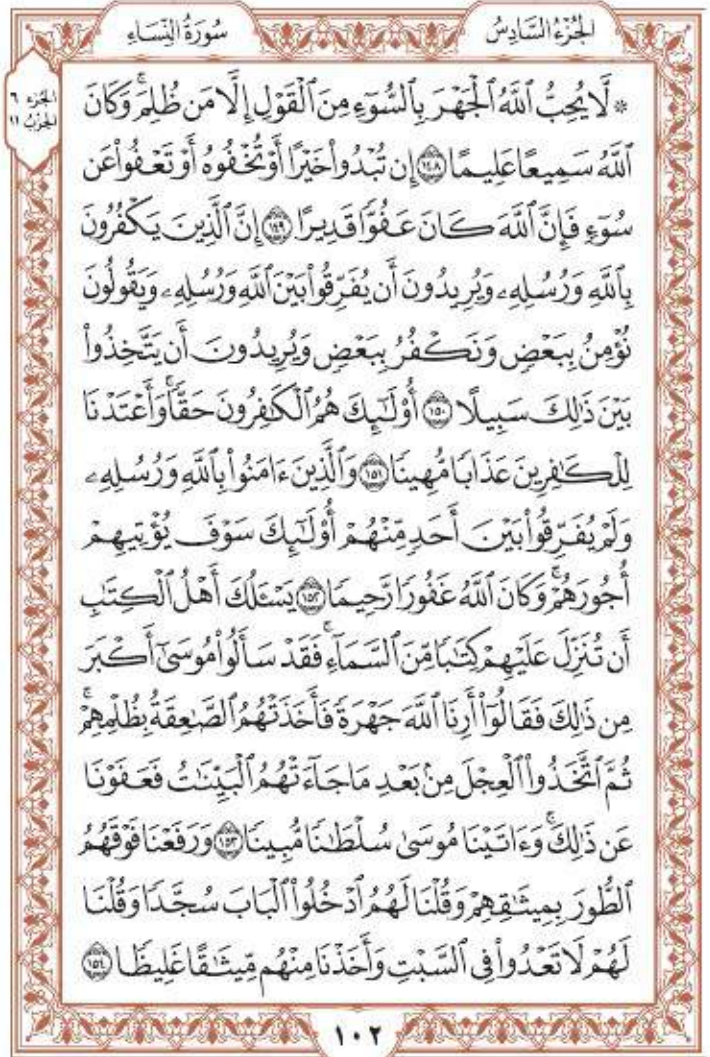 الجُزْءُ السَّادِسُ سُورَةُ النِّسَاءِ
الجزء ٦
الحزب ١١
۞ لَّا يُحِبُّ ٱللَّهُ ٱلْجَهْرَ بِٱلسُّوٓءِ مِنَ ٱلْقَوْلِ إِلَّا مَن ظُلِمَۚ وَكَانَ
ٱللَّهُ سَمِيعًا عَلِيمًا ١٤٨ إِن تُبْدُوا۟ خَيْرًا أَوْ تُخْفُوهُ أَوْ تَعْفُوا۟ عَن
سُوٓءٍ فَإِنَّ ٱللَّهَ كَانَ عَفُوًّا قَدِيرًا ١٤٩ إِنَّ ٱلَّذِينَ يَكْفُرُونَ
بِٱللَّهِ وَرُسُلِهِۦ وَيُرِيدُونَ أَن يُفَرِّقُوا۟ بَيْنَ ٱللَّهِ وَرُسُلِهِۦ وَيَقُولُونَ
نُؤْمِنُ بِبَعْضٍ وَنَكْفُرُ بِبَعْضٍ وَيُرِيدُونَ أَن يَتَّخِذُوا۟
بَيْنَ ذَٰلِكَ سَبِيلًا ١٥٠ أُو۟لَٰٓئِكَ هُمُ ٱلْكَٰفِرُونَ حَقًّاۚ وَأَعْتَدْنَا
لِلْكَٰفِرِينَ عَذَابًا مُّهِينًا ١٥١ وَٱلَّذِينَ ءَامَنُوا۟ بِٱللَّهِ وَرُسُلِهِۦ
وَلَمْ يُفَرِّقُوا۟ بَيْنَ أَحَدٍ مِّنْهُمْ أُو۟لَٰٓئِكَ سَوْفَ يُؤْتِيهِمْ
أُجُورَهُمْۚ وَكَانَ ٱللَّهُ غَفُورًا رَّحِيمًا ١٥٢ يَسْـَٔلُكَ أَهْلُ ٱلْكِتَٰبِ
أَن تُنَزِّلَ عَلَيْهِمْ كِتَٰبًا مِّنَ ٱلسَّمَآءِۚ فَقَدْ سَأَلُوا۟ مُوسَىٰٓ أَكْبَرَ
مِن ذَٰلِكَ فَقَالُوٓا۟ أَرِنَا ٱللَّهَ جَهْرَةً فَأَخَذَتْهُمُ ٱلصَّٰعِقَةُ بِظُلْمِهِمْۚ
ثُمَّ ٱتَّخَذُوا۟ ٱلْعِجْلَ مِنۢ بَعْدِ مَا جَآءَتْهُمُ ٱلْبَيِّنَٰتُ فَعَفَوْنَا
عَن ذَٰلِكَۚ وَءَاتَيْنَا مُوسَىٰ سُلْطَٰنًا مُّبِينًا ١٥٣ وَرَفَعْنَا فَوْقَهُمُ
ٱلطُّورَ بِمِيثَٰقِهِمْ وَقُلْنَا لَهُمُ ٱدْخُلُوا۟ ٱلْبَابَ سُجَّدًا وَقُلْنَا
لَهُمْ لَا تَعْدُوا۟ فِى ٱلسَّبْتِ وَأَخَذْنَا مِنْهُم مِّيثَٰقًا غَلِيظًا ١٥٤
١٠٢